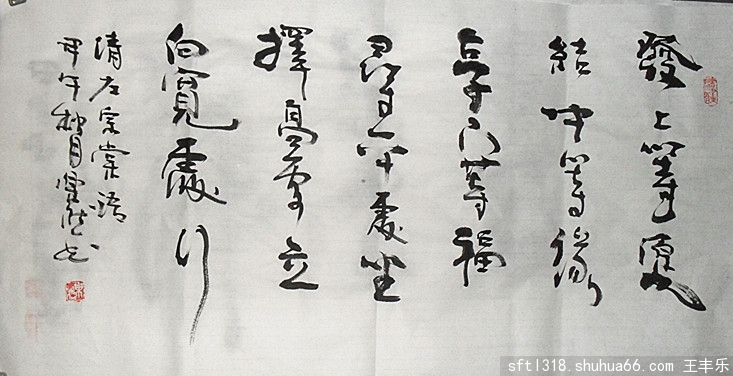 發上等願
結中等緣
享下等福
尋平處坐
擇高處立
向寬處行
清左宗棠語
甲午秋月 书
sftl318.shuhua66.com 王丰乐